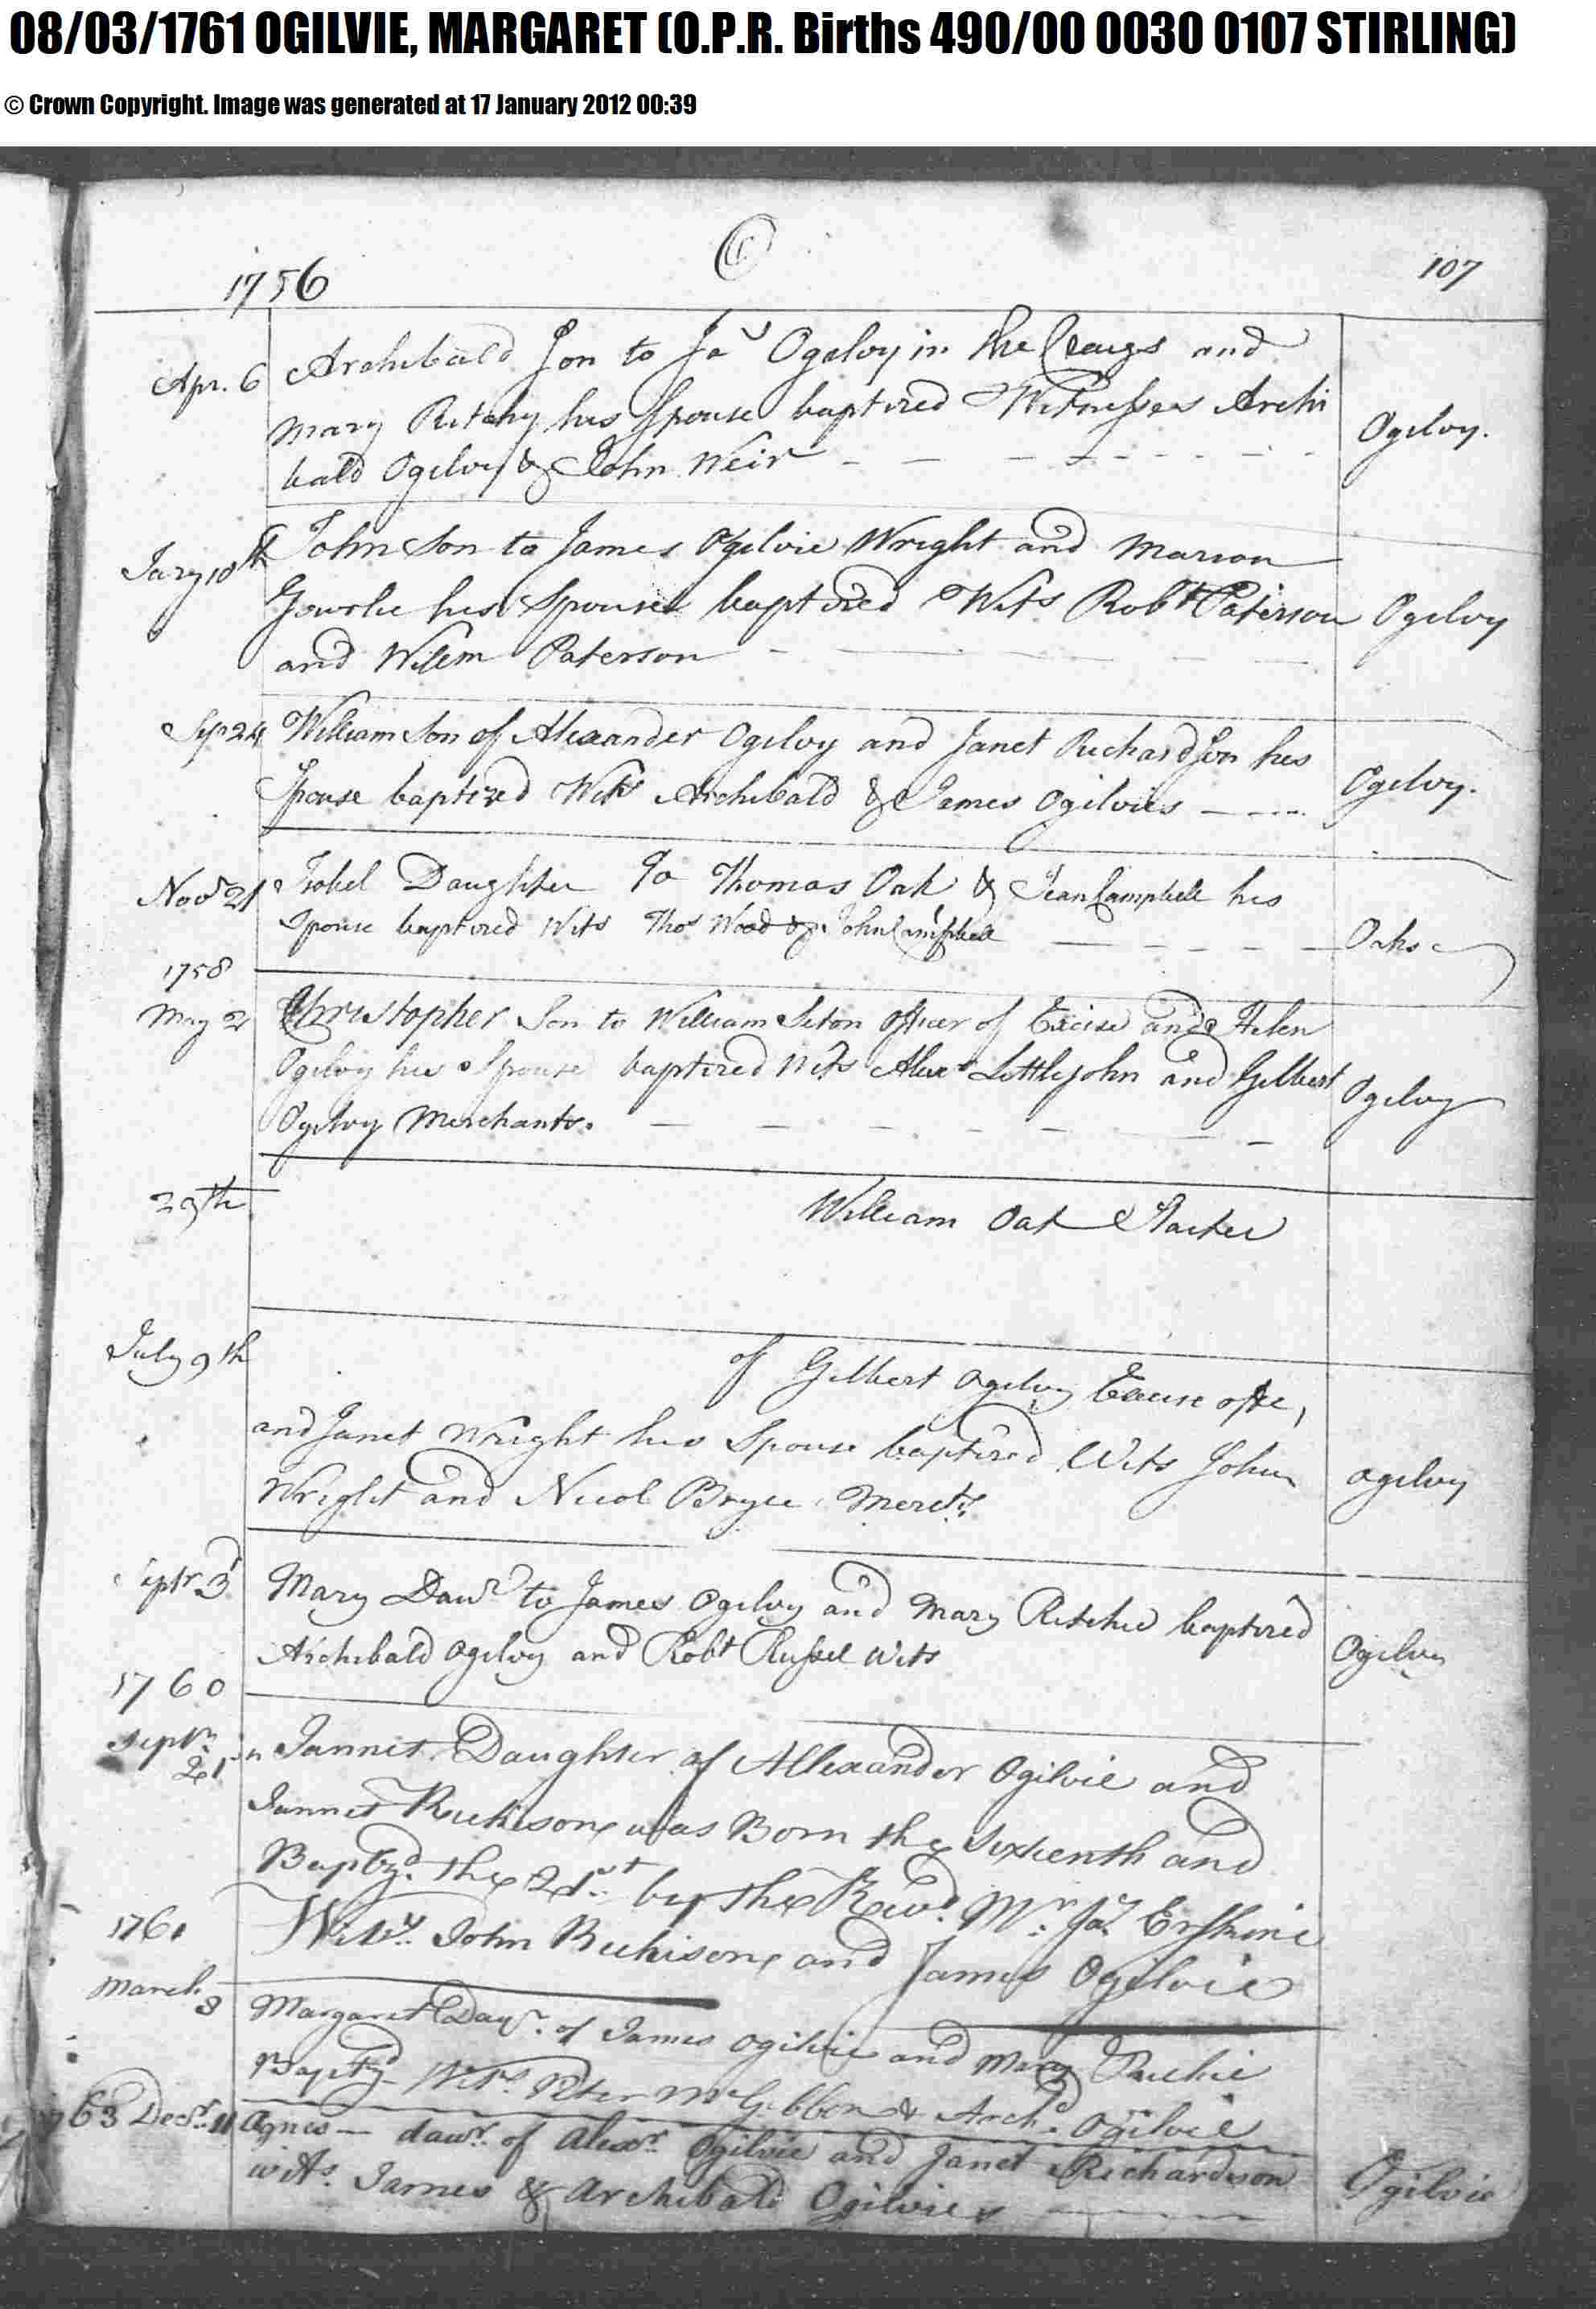 08/03/1761 OGILVIE, MARGARET (O.P.R. Births 490/00 0030 0107 STIRLING)
© Crown Copyright. Image was generated at 17 January 2012 00:39
1756
107
Apr. 6
Archibald Son to Jas Ogelvy in the Craigs and
Mary Ritchy his Spouse baptized Witnesses Archi
bald Ogilvy & John Weir
Ogilvy.
Jary 10th
John Son to James Ogilvie Wright and Marion
Gowrlie his Spouse baptized Wits Robt Paterson
and Willm Paterson
Ogilvy
Sepr 24
William Son of Alexander Ogilvy and Janet Richardson his
Spouse baptized Wits Archibald & James Ogilvies
Ogilvy.
Novr 21
Isobel Daughter To Thomas Oak & Jean Campbell his
Spouse baptized Wits Thos Wood & John Campbell
Oaks
1758
May 2
Christopher Son to William Seton Officer of Excise and Helen
Ogilvy his Spouse baptized Wits Alexr Littlejohn and Gilbert
Ogilvy Merchants.
Ogilvy
29th
William Oak
July 9th
of Gilbert Ogilvy Excise offr,
and Janet Wright his Spouse baptized Wits John
Wright and Nicol Bryce Merchts
Ogilvy
Septr 3d
Mary Dawr to James Ogilvy and Mary Ritchie baptized
Archibald Ogilvy and Robt Russel Wits
Ogilvy
1760
Septr 21
Jannet Daughter of Allexander Ogilvie and
Jannet Richison was Born the Sixteenth and
Baptzd. the 21st by the Revd. Mr. Jas. Erskine
Wits. John Richison and James Ogilvie
1761
March 8
Margaret Dawr. of James Ogilvie and Mary Ritchie
Baptzd Wits. Peter McGibbon & Archd. Ogilvie
63 Decr. 11
Agnes dawr. of Alexr. Ogilvie and Janet Richardson
wits. James & Archibald Ogilvies
Ogilvie